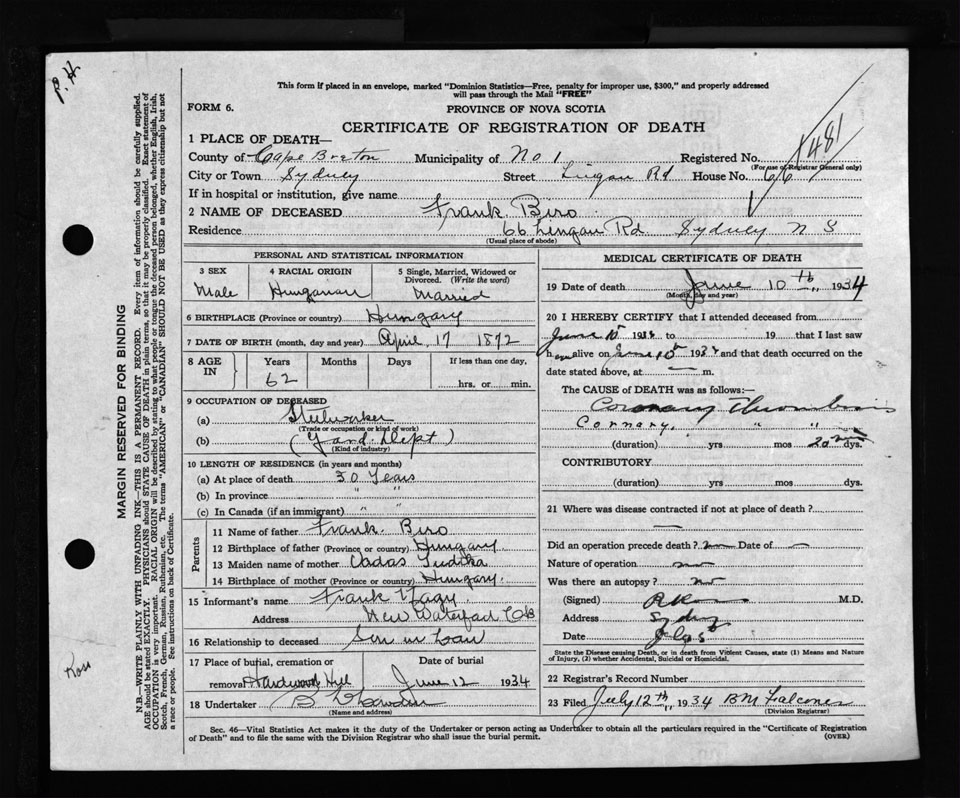 P. H.
This form if placed in an envelope, marked "Dominion Statistics—Free, penalty for improper use, $300," and properly addressed
will pass through the Mail "FREE"
FORM 6. PROVINCE OF NOVA SCOTIA
CERTIFICATE OF REGISTRATION OF DEATH
1481
1 PLACE OF DEATH—
County of Cape Breton Municipality of No 1 Registered No.
(For use of Registrar General only)
City or Town Sydney Street Lingan Rd House No. 66
If in hospital or institution, give name
2 NAME OF DECEASED Frank Biro
Residence 66 Lingan Rd. Sydney N S
(Usual place of abode)
PERSONAL AND STATISTICAL INFORMATION
3 SEX 4 RACIAL ORIGIN 5 Single, Married, Widowed or
Divorced. (Write the word)
Male Hungarian Married
6 BIRTHPLACE (Province or country) Hungary
7 DATE OF BIRTH (month, day and year) April 17 1872
8 AGE IN Years Months Days If less than one day,
62 hrs. or min.
9 OCCUPATION OF DECEASED
(a) Steelworker
(Trade or occupation or kind of work)
(b) (Yard. Dept)
(Kind of industry)
10 LENGTH OF RESIDENCE (in years and months)
(a) At place of death 30 Years
(b) In province " "
(c) In Canada (if an immigrant) " "
Parents
11 Name of father Frank Biro
12 Birthplace of father (Province or country) Hungary
13 Maiden name of mother Vadas
14 Birthplace of mother (Province or country) Hungary.
15 Informant's name Frank Nagy
Address New Waterford CB
16 Relationship to deceased Son in Law
17 Place of burial, cremation or Date of burial
removal Hardwood Hill June 12 1934
18 Undertaker
(Name and address)
MEDICAL CERTIFICATE OF DEATH
19 Date of death June 10th 1934
(Month, day and year)
20 I HEREBY CERTIFY that I attended deceased from
June 193 to 19 that I last saw
h alive on 193 and that death occurred on the
date stated above, at — m.
The CAUSE OF DEATH was as follows:—
Coronary Thrombosis
Cornary, " "
(duration) yrs mos 20 dys.
CONTRIBUTORY
(duration) yrs mos dys.
21 Where was disease contracted if not at place of death?
—
Did an operation precede death? no Date of —
Nature of operation
Was there an autopsy? no
(Signed) M.D.
Address Sydney
Date
State the Disease causing Death, or in death from Violent Causes, state (1) Means and Nature
of Injury, (2) whether Accidental, Suicidal or Homicidal.
22 Registrar's Record Number
23 Filed July 12th 1934 BM
(Division Registrar)
Sec. 46—Vital Statistics Act makes it the duty of the Undertaker or person acting as Undertaker to obtain all the particulars required in the "Certificate of Registration
of Death" and to file the same with the Division Registrar who shall issue the burial permit. (OVER)
MARGIN RESERVED FOR BINDING
N.B.—WRITE PLAINLY WITH UNFADING INK—THIS IS A PERMANENT RECORD. Every item of information should be carefully supplied.
AGE should be stated EXACTLY. PHYSICIANS should STATE CAUSE OF DEATH in plain terms, so that it may be properly classified. Exact statement of
OCCUPATION is very important. RACIAL ORIGIN will be described by stating to what people or tongue the deceased person belonged, whether English, Irish,
Scotch, French, German, Russian, Ruthenian, etc. The terms "AMERICAN" or "CANADIAN" SHOULD NOT BE USED as they express citizenship but not
a race or people. See instructions on back of Certificate.